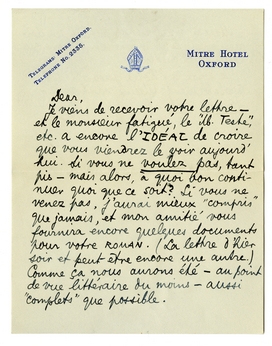 Telegrams: Mitre Oxford.
Telephone No. 2335.
MITRE HOTEL
OXFORD
Dear,
Je viens de recevoir votre lettre —
et le monsieur fatigué, le "Teste"
etc. a encore l'IDEAL de croire
que vous viendrez le voir aujourd'
hui. Si vous ne voulez pas, tant
pis — mais alors, à quoi bon conti-
nuer quoi que ce soit? Si vous ne
venez pas, j'aurai mieux "compris"
que jamais, et mon amitié vous
fournira encore quelques documents
pour votre ROMAN. (La lettre d'hier
soir et peut être encore une autre.)
Comme ça nous aurons été — au point
de vue littéraire du moins — aussi
"complets" que possible.